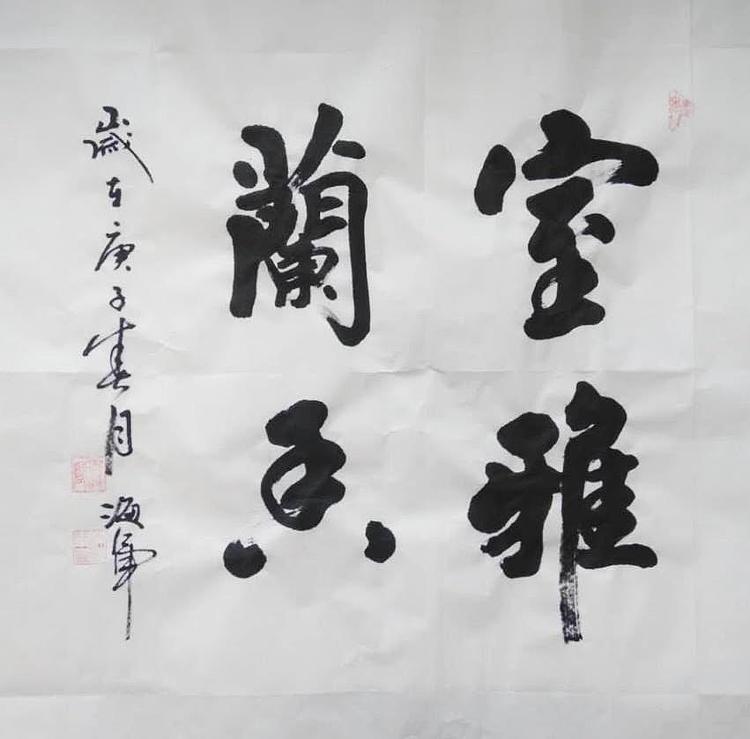 室雅
蘭香
歲在庚子春月 海